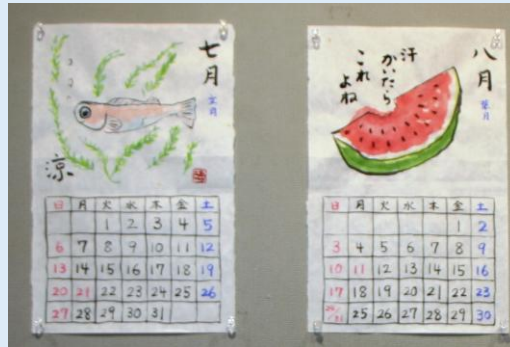 七月
文月
涼
日 月 火 水 木 金 土
1 2 3 4 5
6 7 8 9 10 11 12
13 14 15 16 17 18 19
20 21 22 23 24 25 26
27 28 29 30 31
八月
葉月
汗
かいたら
これ
よね
日 月 火 水 木 金 土
1 2
3 4 5 6 7 8 9
10 11 12 13 14 15 16
17 18 19 20 21 22 23
24/31 25 26 27 28 29 30